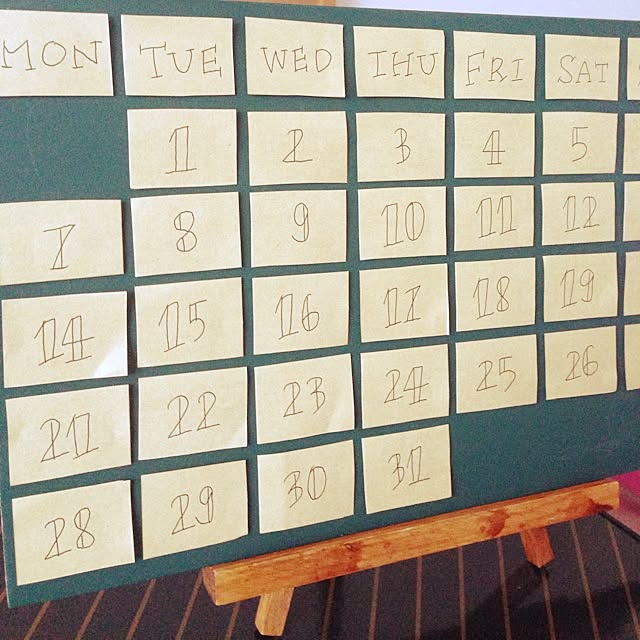 MON TUE WED THU FRI SAT
1 2 3 4 5
7 8 9 10 11 12
14 15 16 17 18 19
21 22 23 24 25 26
28 29 30 31